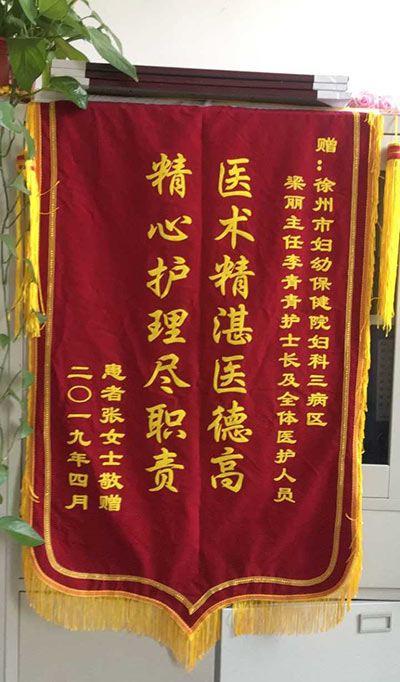 赠：徐州市妇幼保健院妇科三病区
梁丽主任李青青护士长及全体医护人员
医术精湛医德高
精心护理尽职责
患者张女士敬赠
二〇一九年四月